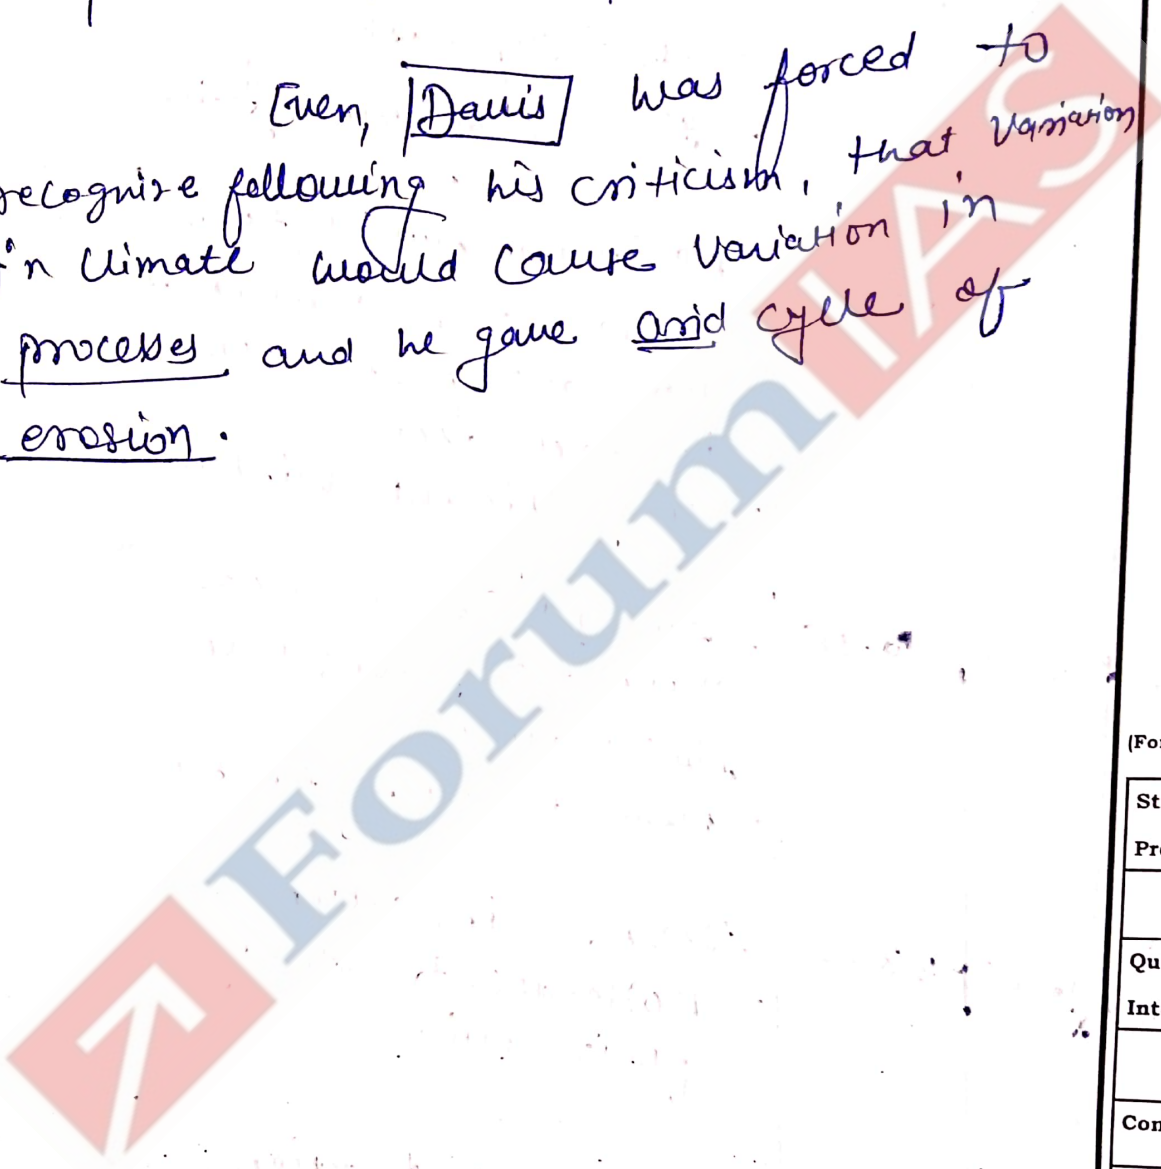 Even, Davis was forced to
recognise following his criticism, that variation
in climate would cause variation in
processes and he gave arid cycle of
erosion.
Forum IAS
(For
St
Pr
Qu
Int
Con